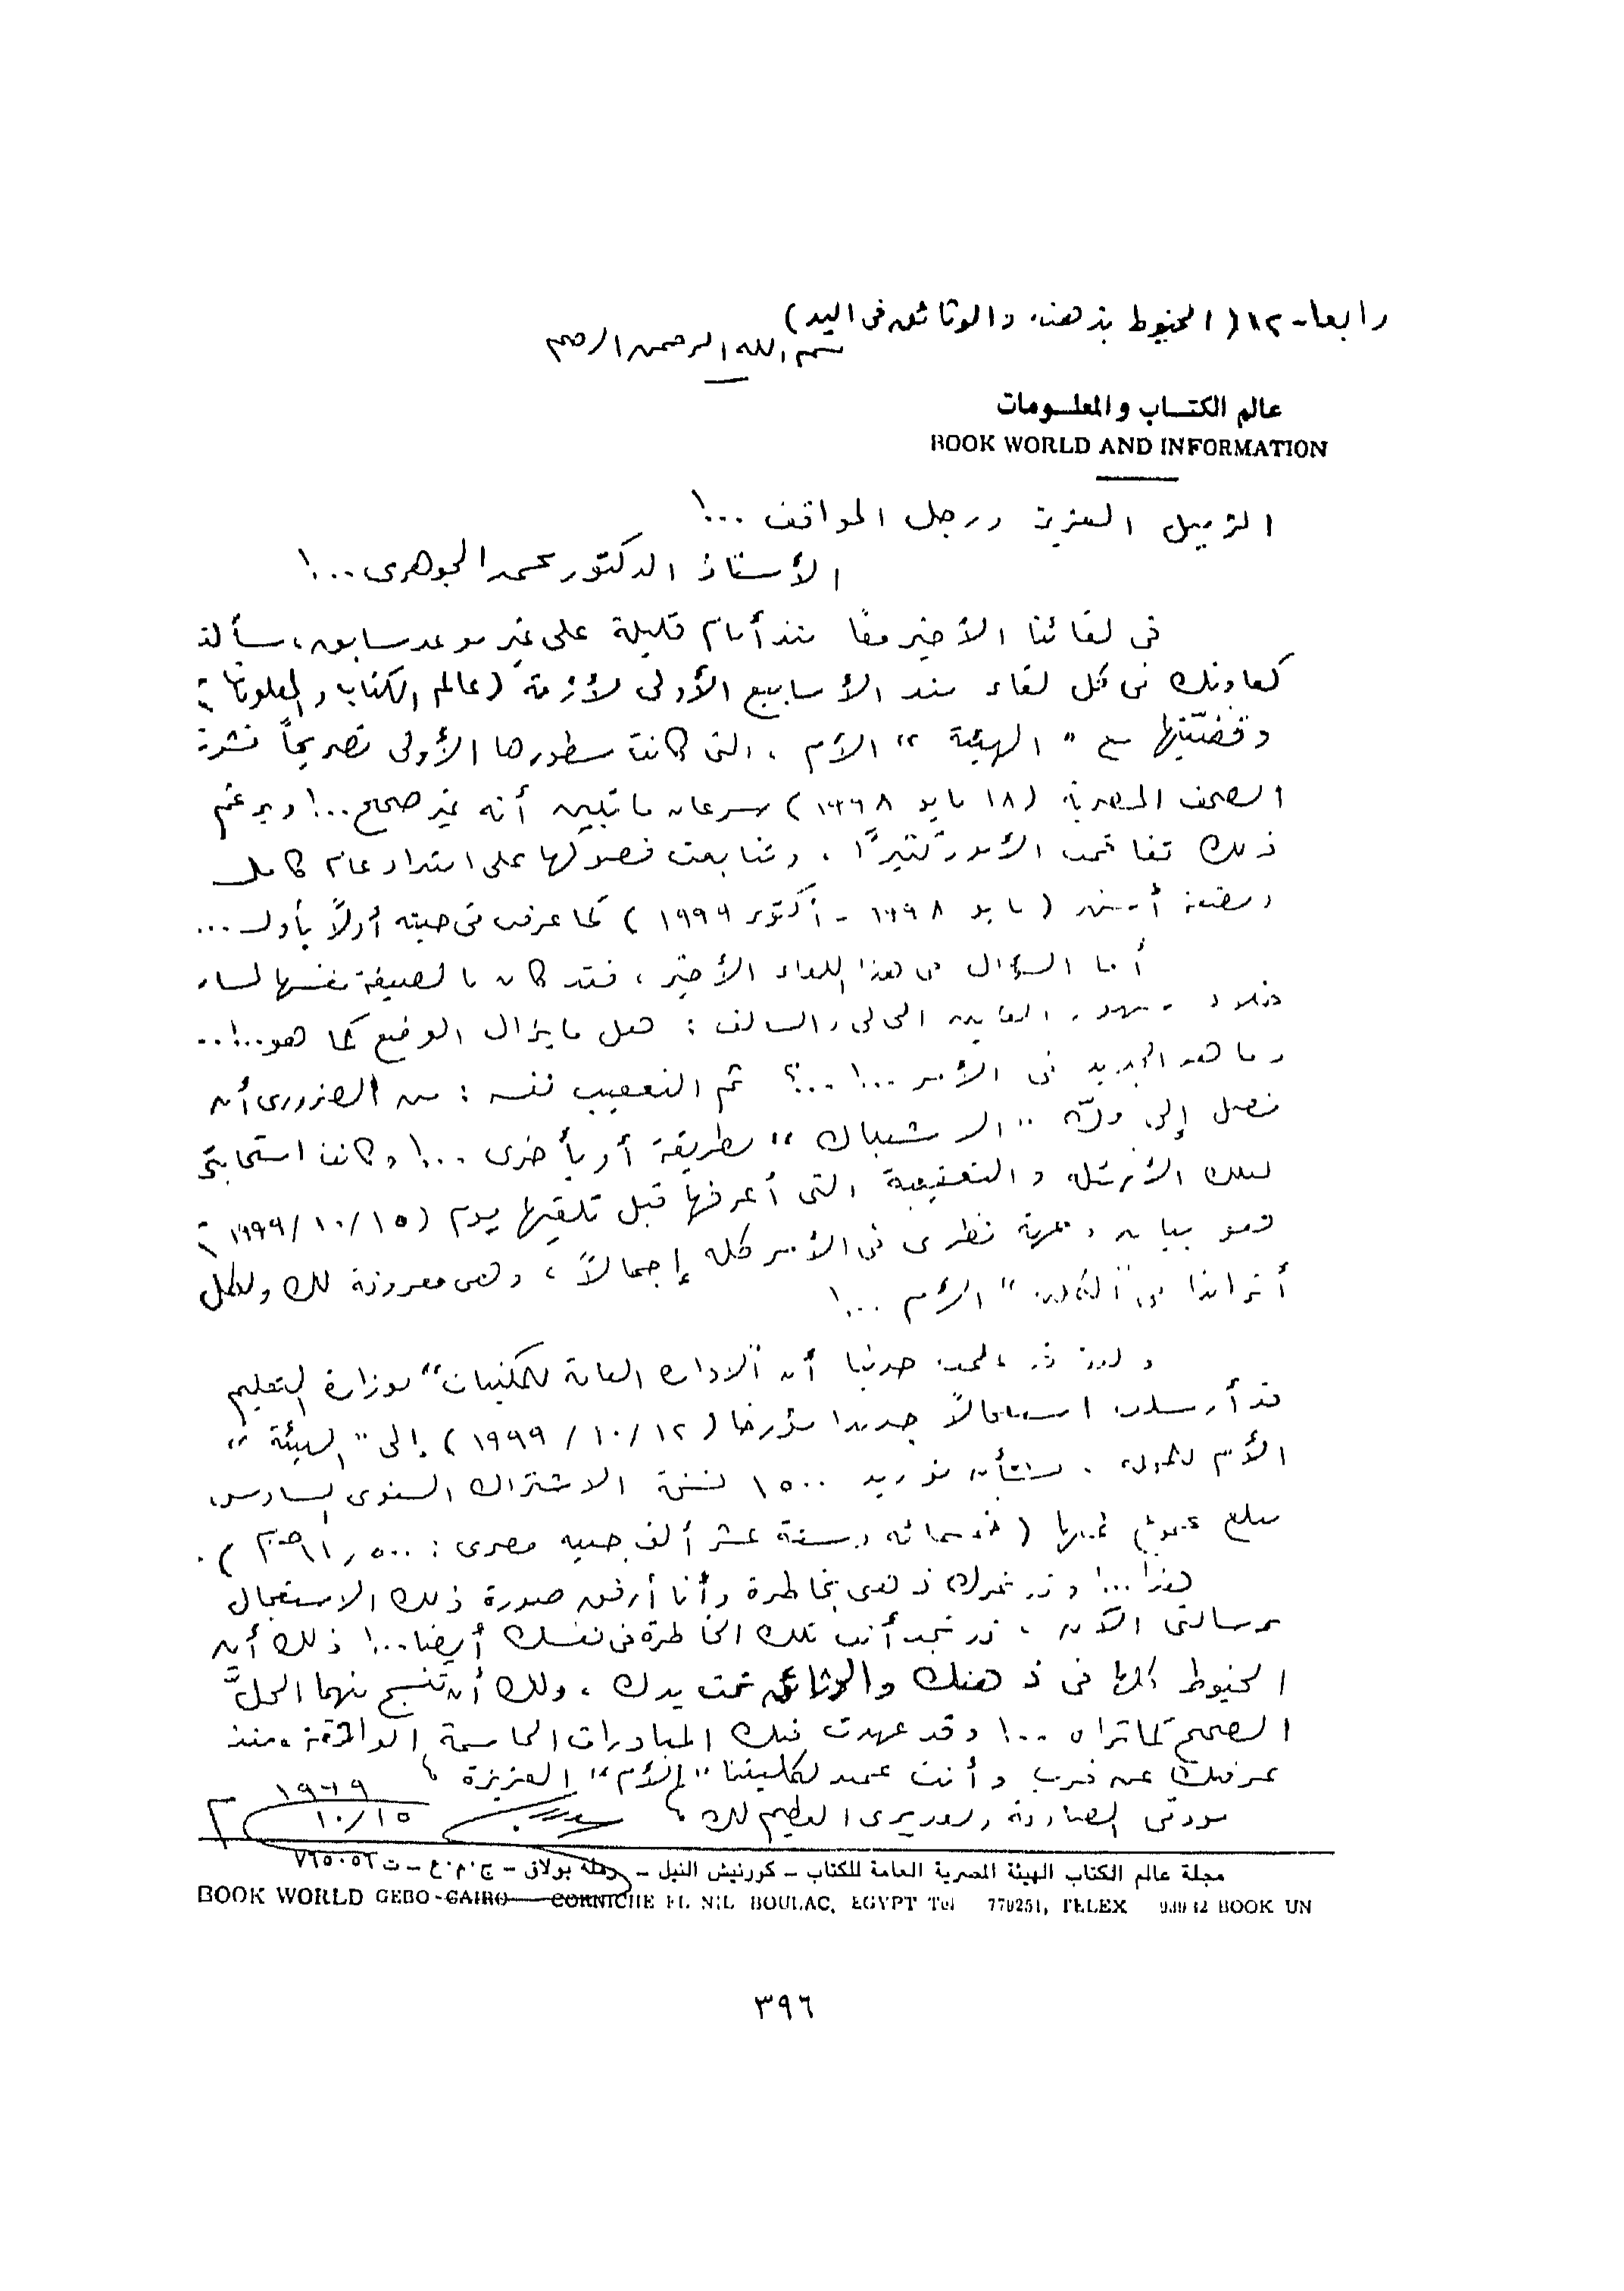 رابعا - ١٢ (الخيوط بذهنه، والوثائق فى اليد)
بسم الله الرحمن الرحيم
عالم الكتـــاب والمعلــومات
BOOK WORLD AND INFORMATION
الزميل العزيز ورجل المواقف ...!
الأستاذ الدكتور محمد الجوهرى ...!
فى لقائنا الأخير معًا منذ أيام قليلة على غير موعد سابق، سألت
كعادتك فى كل لقاء منذ الأسابيع الأولى لأزمة (عالم الكتاب والمعلومات)
وقضيّتها مع "الهيئة" الأم، التى كانت سطورها الأولى تصريحاً نشرته
الصحف المصرية (١٨ مايو ١٩٩٨) سرعان ما تبين أنه غير صحيح ...! وبرغم
ذلك تفاقمت الأمور كثيرًا، وتتابعت فصولها على امتداد عام كامل
وبضعة أشهر (مايو ١٩٩٨ - أكتوبر ١٩٩٩) كما عرفت فى حينه أولاً بأول ...
أما السؤال فى هذا اللقاء الأخير، فقد كان بالصيغة نفسها
العامين الحالى والسالف: هل ما يزال الوضع كما هو ..!..
وما هو الجديد فى الأمر ...! ...؟ ثم التعقيب نفسه: من الضرورى أن
نصل إلى فكّ "الاشتباك" بطريقة أو بأخرى ...! وكانت استجابتى
لتلك الأسئلة والتعقيبة التى أعرفها قبل تلقيها يوم (١٩٩٩/١٠/١٥)
هو بيان وجهة نظرى فى الأمر كله إجمالاً، وهى معروفة لك ولكل
الأم ...!
أن "الادارة العامة للمكتبات" بوزارة التعليم
قد أرسلت استعجالاً جديدا مؤرخا (١٩٩٩/١٠/١٢) إلى "الهيئة"
الأم، بشأن توريد ١٥٠٠ نسخة الاشتراك السنوى السادس،
(خمسمائه وستة عشر ألف جنيه مصرى:
هذا ...! وقد تحرك ذهنى بخاطرة وأنا أرفق صورة ذلك الاستعجال
برسالتى الآن، قد تجد أنت تلك الخاطرة فى نفسك أيضا ...! ذلك أن
الخيوط كلها فى ذهنك والوثائق تحت يدك، ولك أن تنسج منهما الحلَّ
الصحيح كما تراه ...! وقد عهدت فيك المبادرات الحاسمة الواثقة، منذ
عرفتك عن قرب وأنت عميد لكليتنا "الأم" العزيزة،
مودتى الصادقة وتقديرى العظيم لك،
١٩٩٩
١٠/١٥
مجلة عالم الكتاب الهيئة المصرية العامة للكتاب – كورنيش النيل – رملة بولاق – ج.م.ع – ت ٧٦٥٠٥٢
BOOK WORLD GEBO-CAIRO — CORNICHE EL NIL BOULAC, EGYPT Tel 779251, TELEX 93932 BOOK UN
٣٩٦